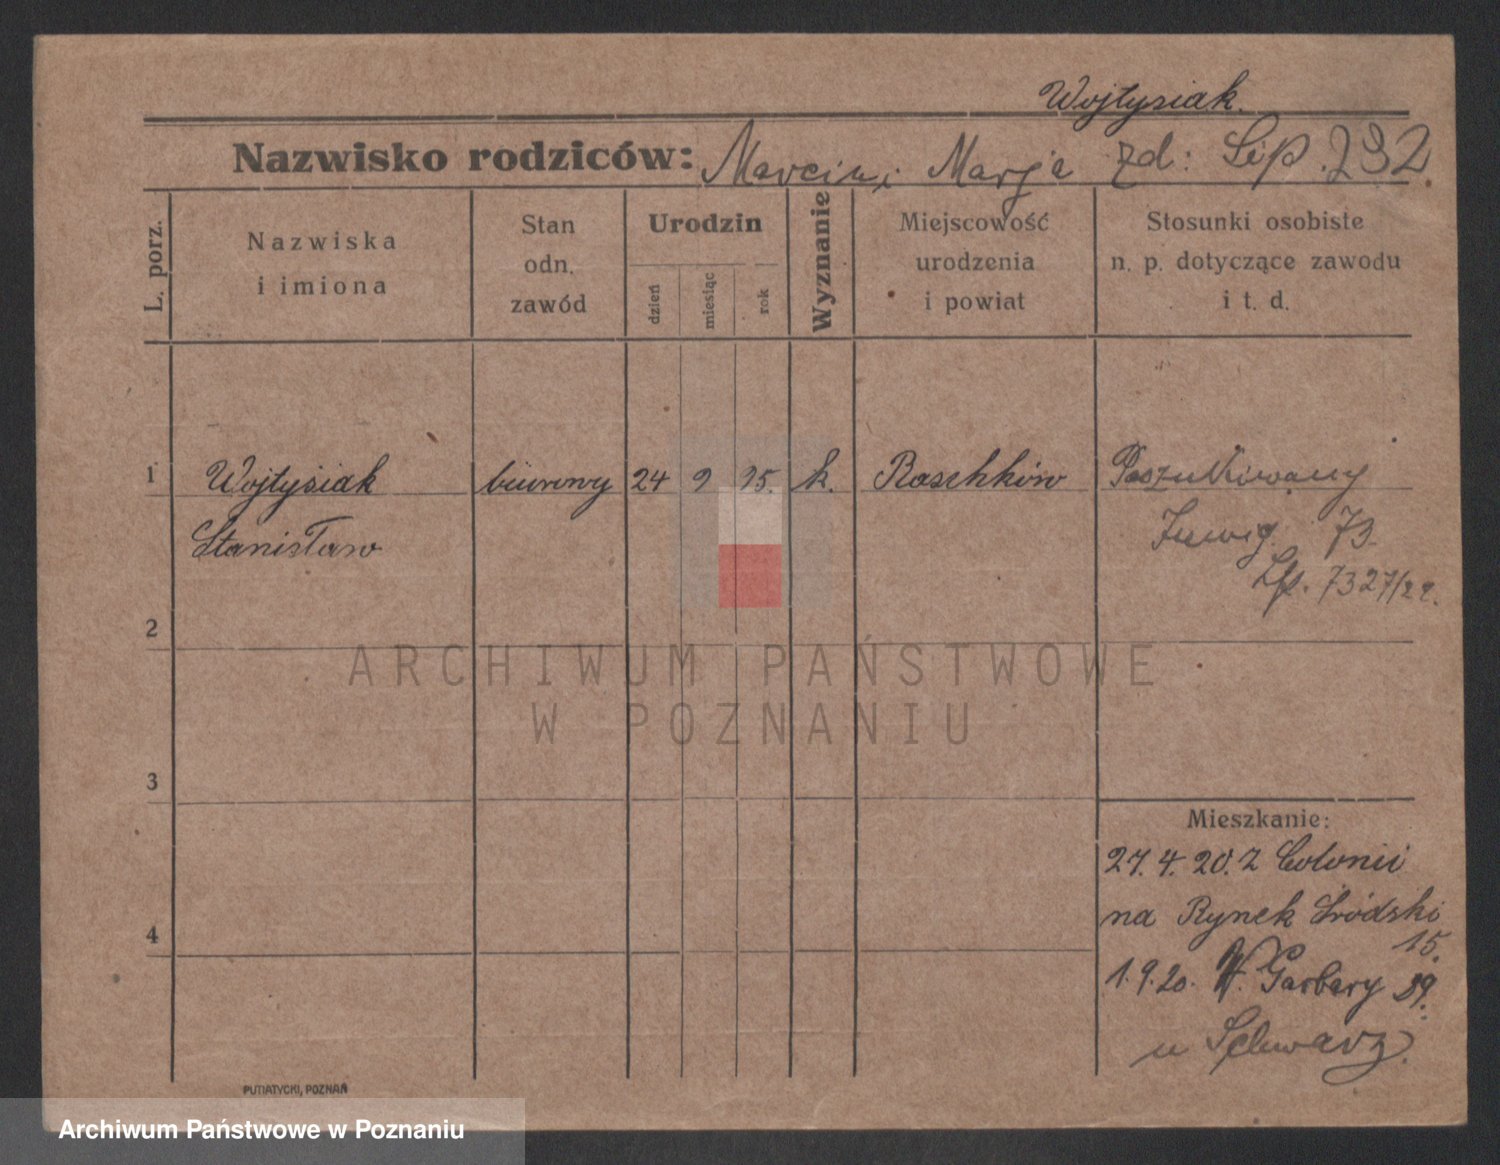 Wojtysiak.
Nazwisko rodziców: Marcin i Marja zd: Lip. 232.
L. porz.
Nazwiska
i imiona
Stan
odn.
zawód
Urodzin
dzień
miesiąc
rok
Wyznanie
Miejscowość
urodzenia
i powiat
Stosunki osobiste
n. p. dotyczące zawodu
i t. d.
1 Wojtysiak biurowy 24 9 95. k. Raschków Poszukiwany
Stanisław 73
7327/22.
2
ARCHIWUM PAŃSTWOWE
W POZNANIU
3
Mieszkanie:
27. 4. 20. z Colonii
na Rynek Śródski
15.
4
1. 9. 20. W. Garbary 39.
u Schwarz.
PUTIATYCKI, POZNAŃ
Archiwum Państwowe w Poznaniu